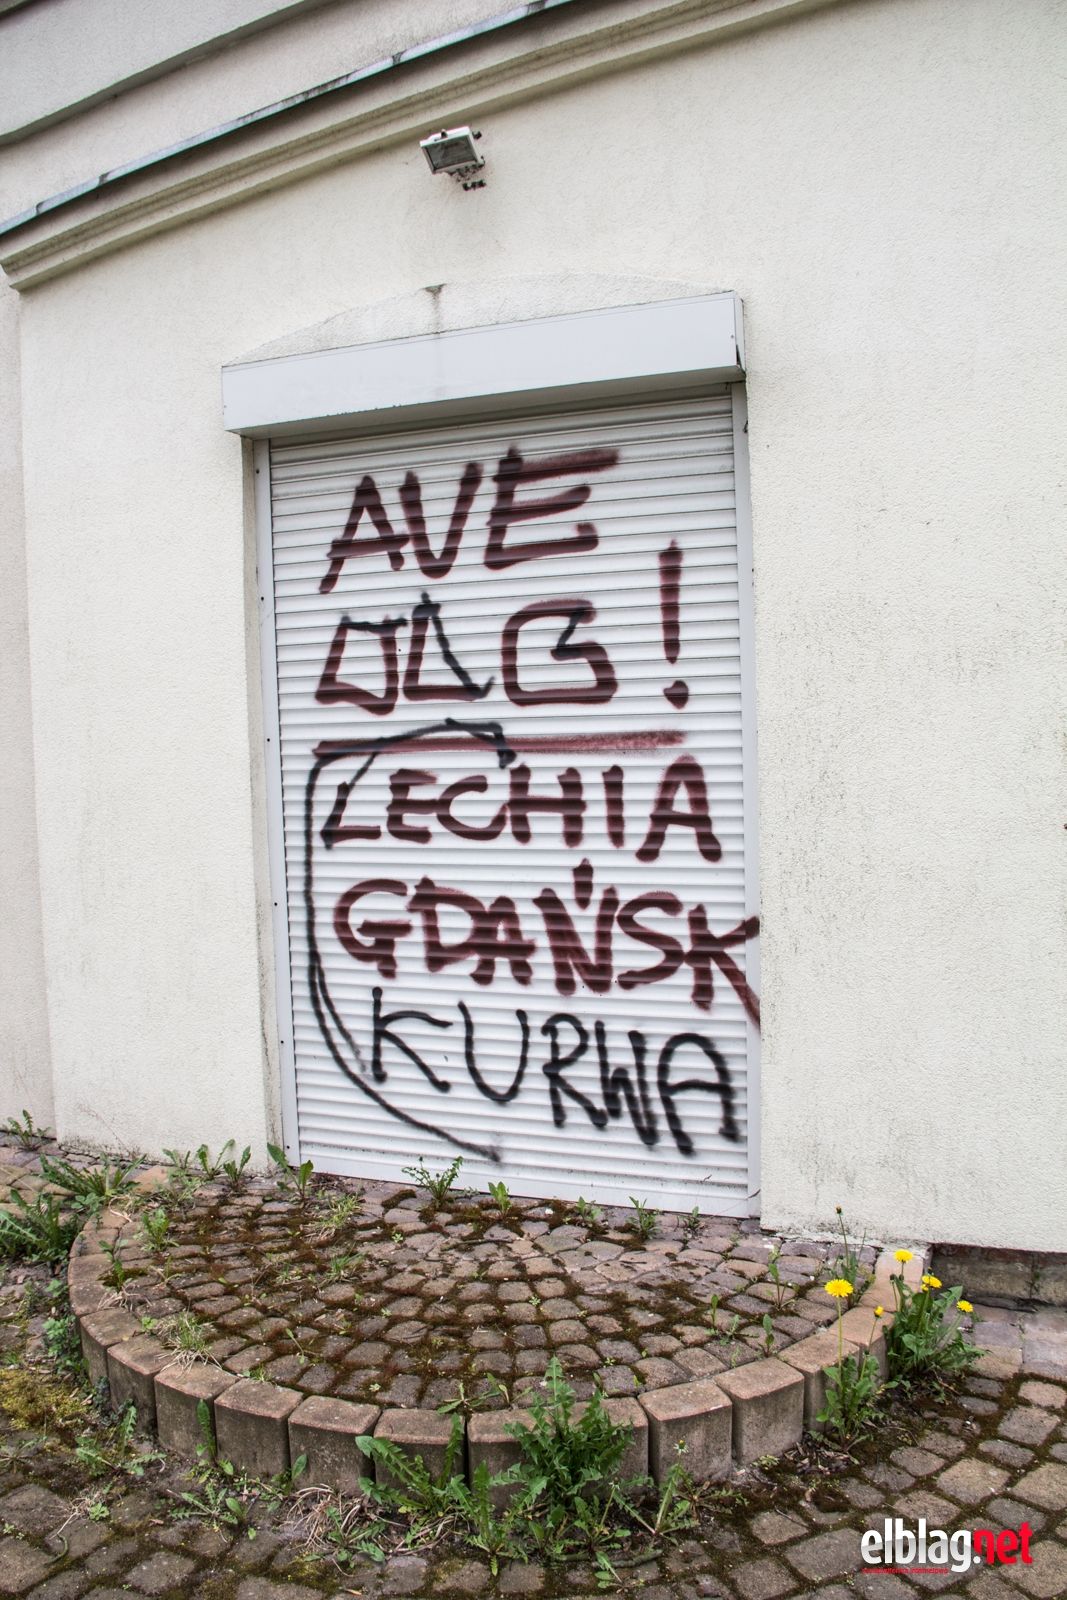 AVE
!
LECHIA
GDAŃSK
KURWA
elblag.net